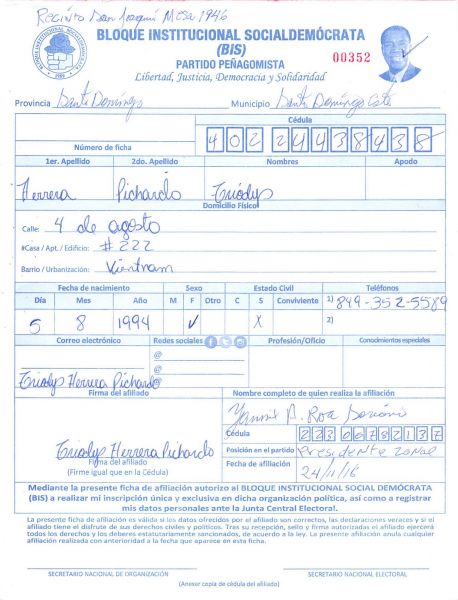 Recinto Juan Joaquin Mesa 1946
BLOQUE INSTITUCIONAL SOCIALDEMÓCRATA
(BIS)
PARTIDO PEÑAGOMISTA
00352
Libertad, Justicia, Democracia y Solidaridad
Provincia Santo Domingo Municipio Santo Domingo Este
Cédula
402 2443843 8
Número de ficha
1er. Apellido 2do. Apellido Nombres Apodo
Herrera Pichardo
Domicilio Físico
Calle: 4 de agosto
#Casa / Apt. / Edificio: #222
Barrio / Urbanización: Vientnam
Fecha de nacimiento Sexo Estado Civil Teléfonos
Día Mes Año M F Otro C S Conviviente 1) 849-352-5589
5 8 1994 ✓ X 2)
Correo electrónico Redes sociales Profesión/Oficio Conocimientos especiales
@
@
@
Herrera Pichardo
Firma del afiliado Nombre completo de quien realiza la afiliación
Rosa
Cédula
223 0078213 7
Herrera Pichardo
Posición en el partido Presidente zonal
Firma del afiliado
(Firme igual que en la Cédula)
Fecha de afiliación 24/11/16
Mediante la presente ficha de afiliación autorizo al BLOQUE INSTITUCIONAL SOCIAL DEMÓCRATA
(BIS) a realizar mi inscripción única y exclusiva en dicha organización política, así como a registrar
mis datos personales ante la Junta Central Electoral.
La presente ficha de afiliación es válida si los datos ofrecidos por el afiliado son correctos, las declaraciones veraces y si el
afiliado tiene el disfrute de sus derechos civiles y políticos. Tras su recepción, sello y firma autorizadas el afiliado ejercerá
todos los derechos y los deberes estatutariamente sancionados, de acuerdo a la ley. La presente afiliación anula cualquier
afiliación realizada con anterioridad a la fecha que aparece en esta ficha.
SECRETARIO NACIONAL DE ORGANIZACIÓN SECRETARIO NACIONAL ELECTORAL
(Anexar copia de cédula del afiliado)